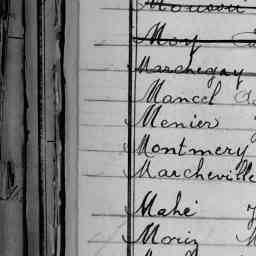 Moy
Marchegay
Mancel
Menier
Montmery
Marcheville
Mahé
Morin